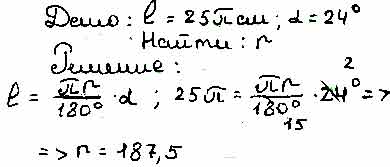 Дано: l = 25π см; α = 24°
Найти: r
Решение:
l = πr/180° · α ; 25π = πr/180° 15 · 24° 2 =>
=> r = 187,5